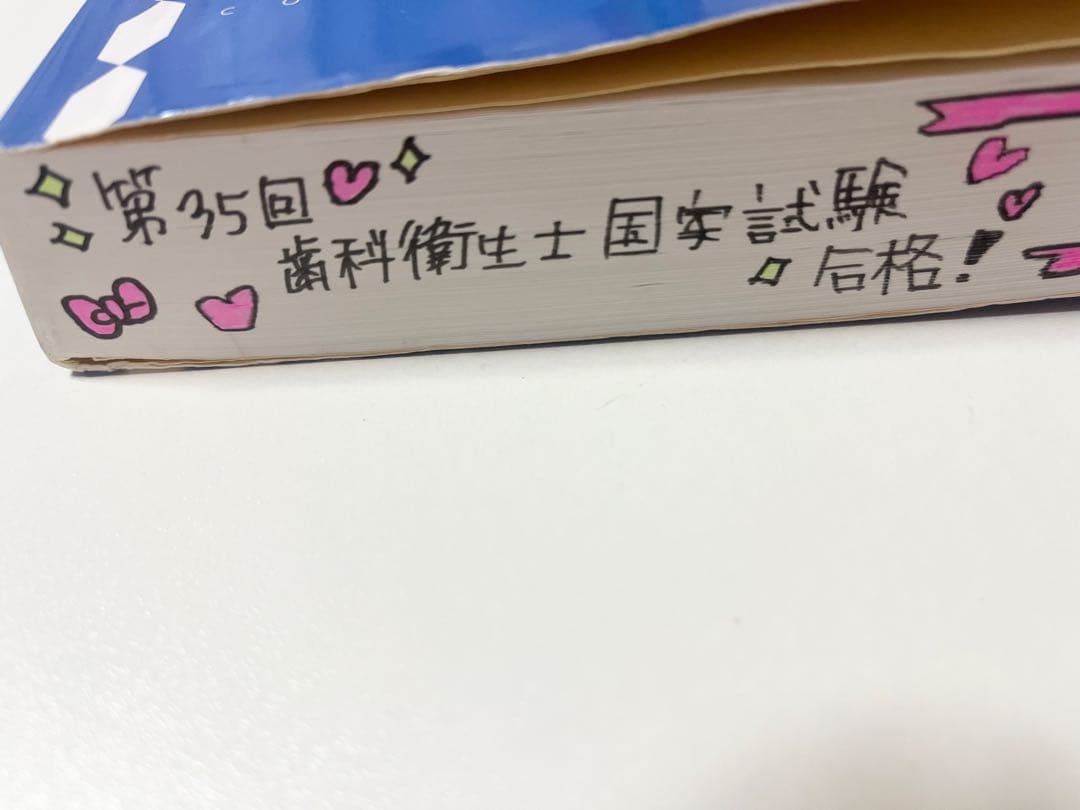 第35回
歯科衛生士国家試験
合格!